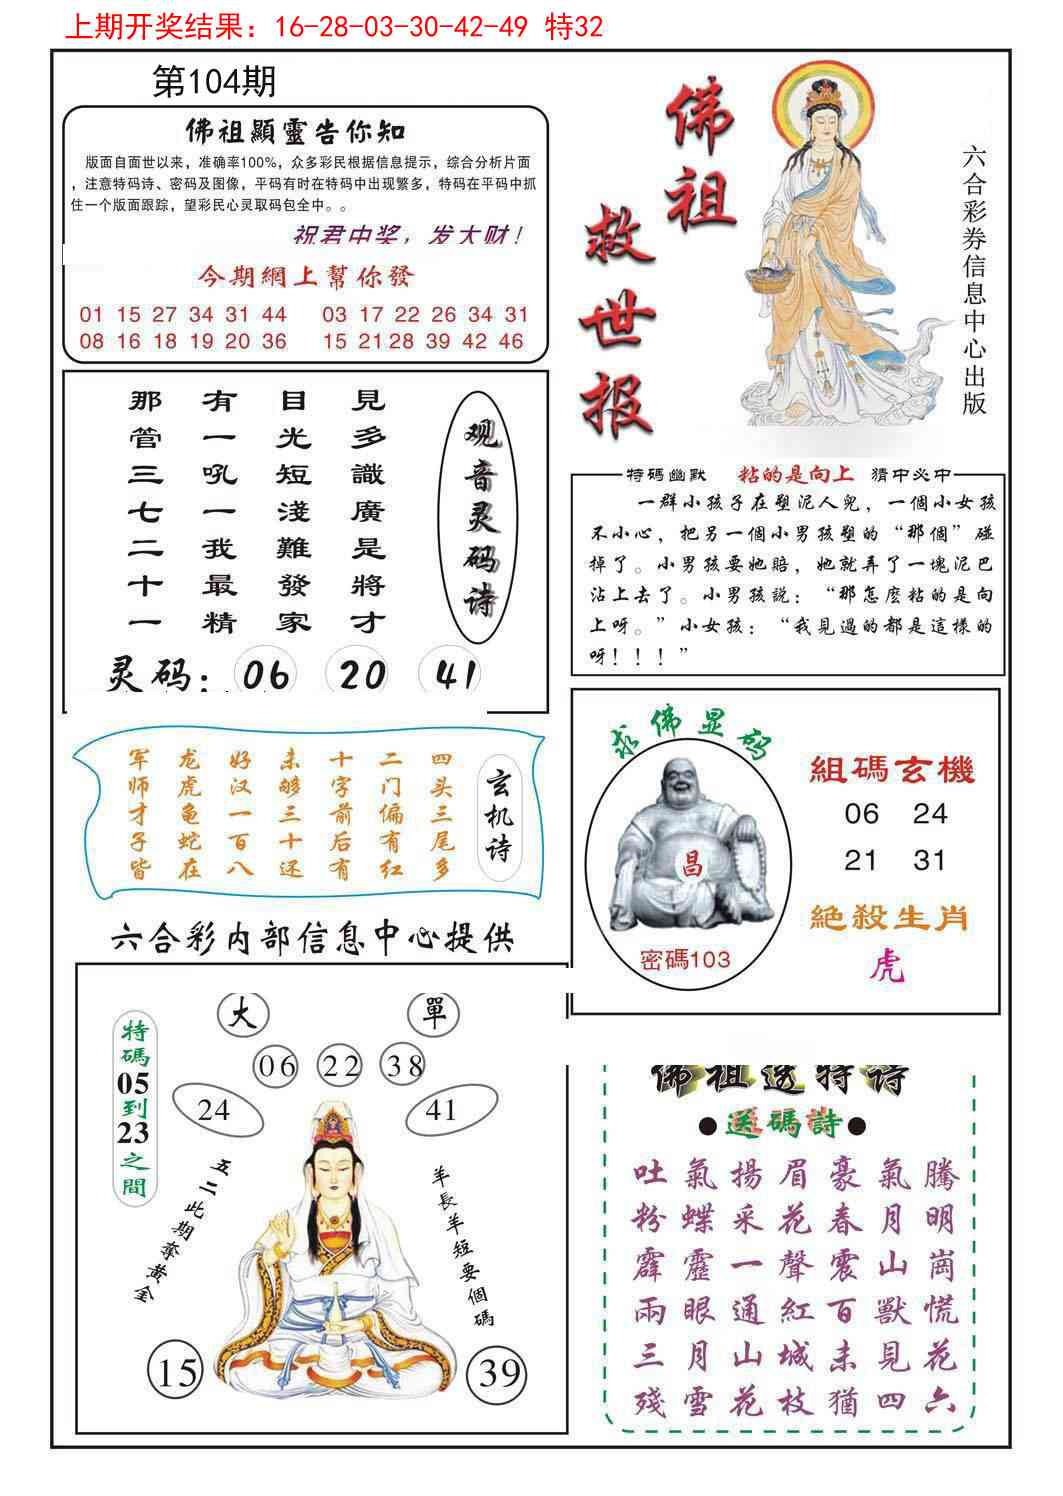 上期开奖结果：16-28-03-30-42-49 特32
第104期
佛祖顯靈告你知
版面自面世以来，准确率100%，众多彩民根据信息提示，综合分析片面
，注意特码诗、密码及图像，平码有时在特码中出现繁多，特码在平码中抓
住一个版面跟踪，望彩民心灵取码包全中。。
祝君中奖，发大财！
今期網上幫你發
01 15 27 34 31 44 03 17 22 26 34 31
08 16 18 19 20 36 15 21 28 39 42 46
佛祖
救世报
六合彩券信息中心出版
观音灵码诗
見多識廣是將才
目光短淺難發家
有一吼一我最精
那管三七二十一
灵码：06 20 41
特碼幽默 粘的是向上 猜中必中
一群小孩子在塑泥人兒，一個小女孩
不小心，把另一個小男孩塑的“那個”碰
掉了。小男孩要她賠，她就弄了一塊泥巴
沾上去了。小男孩説：“那怎麽粘的是向
上呀。”小女孩：“我見過的都是這樣的
呀！！！”
玄机诗
四头三尾多
二门偏有红
十字前后有
未够三十还
好汉一百八
龙虎龟蛇在
军师才子皆
求佛显码
昌
密碼103
組碼玄機
06 24
21 31
絶殺生肖
虎
六合彩内部信息中心提供
特碼05到23之間
大 單
06 22 38
24 41
五二此期奪黄金
羊長羊短要個碼
15 39
佛祖送特诗
●送碼詩●
吐氣揚眉豪氣騰
粉蝶采花春月明
霹靂一聲震山崗
兩眼通紅百獸慌
三月山城未見花
殘雪花枝猶四六